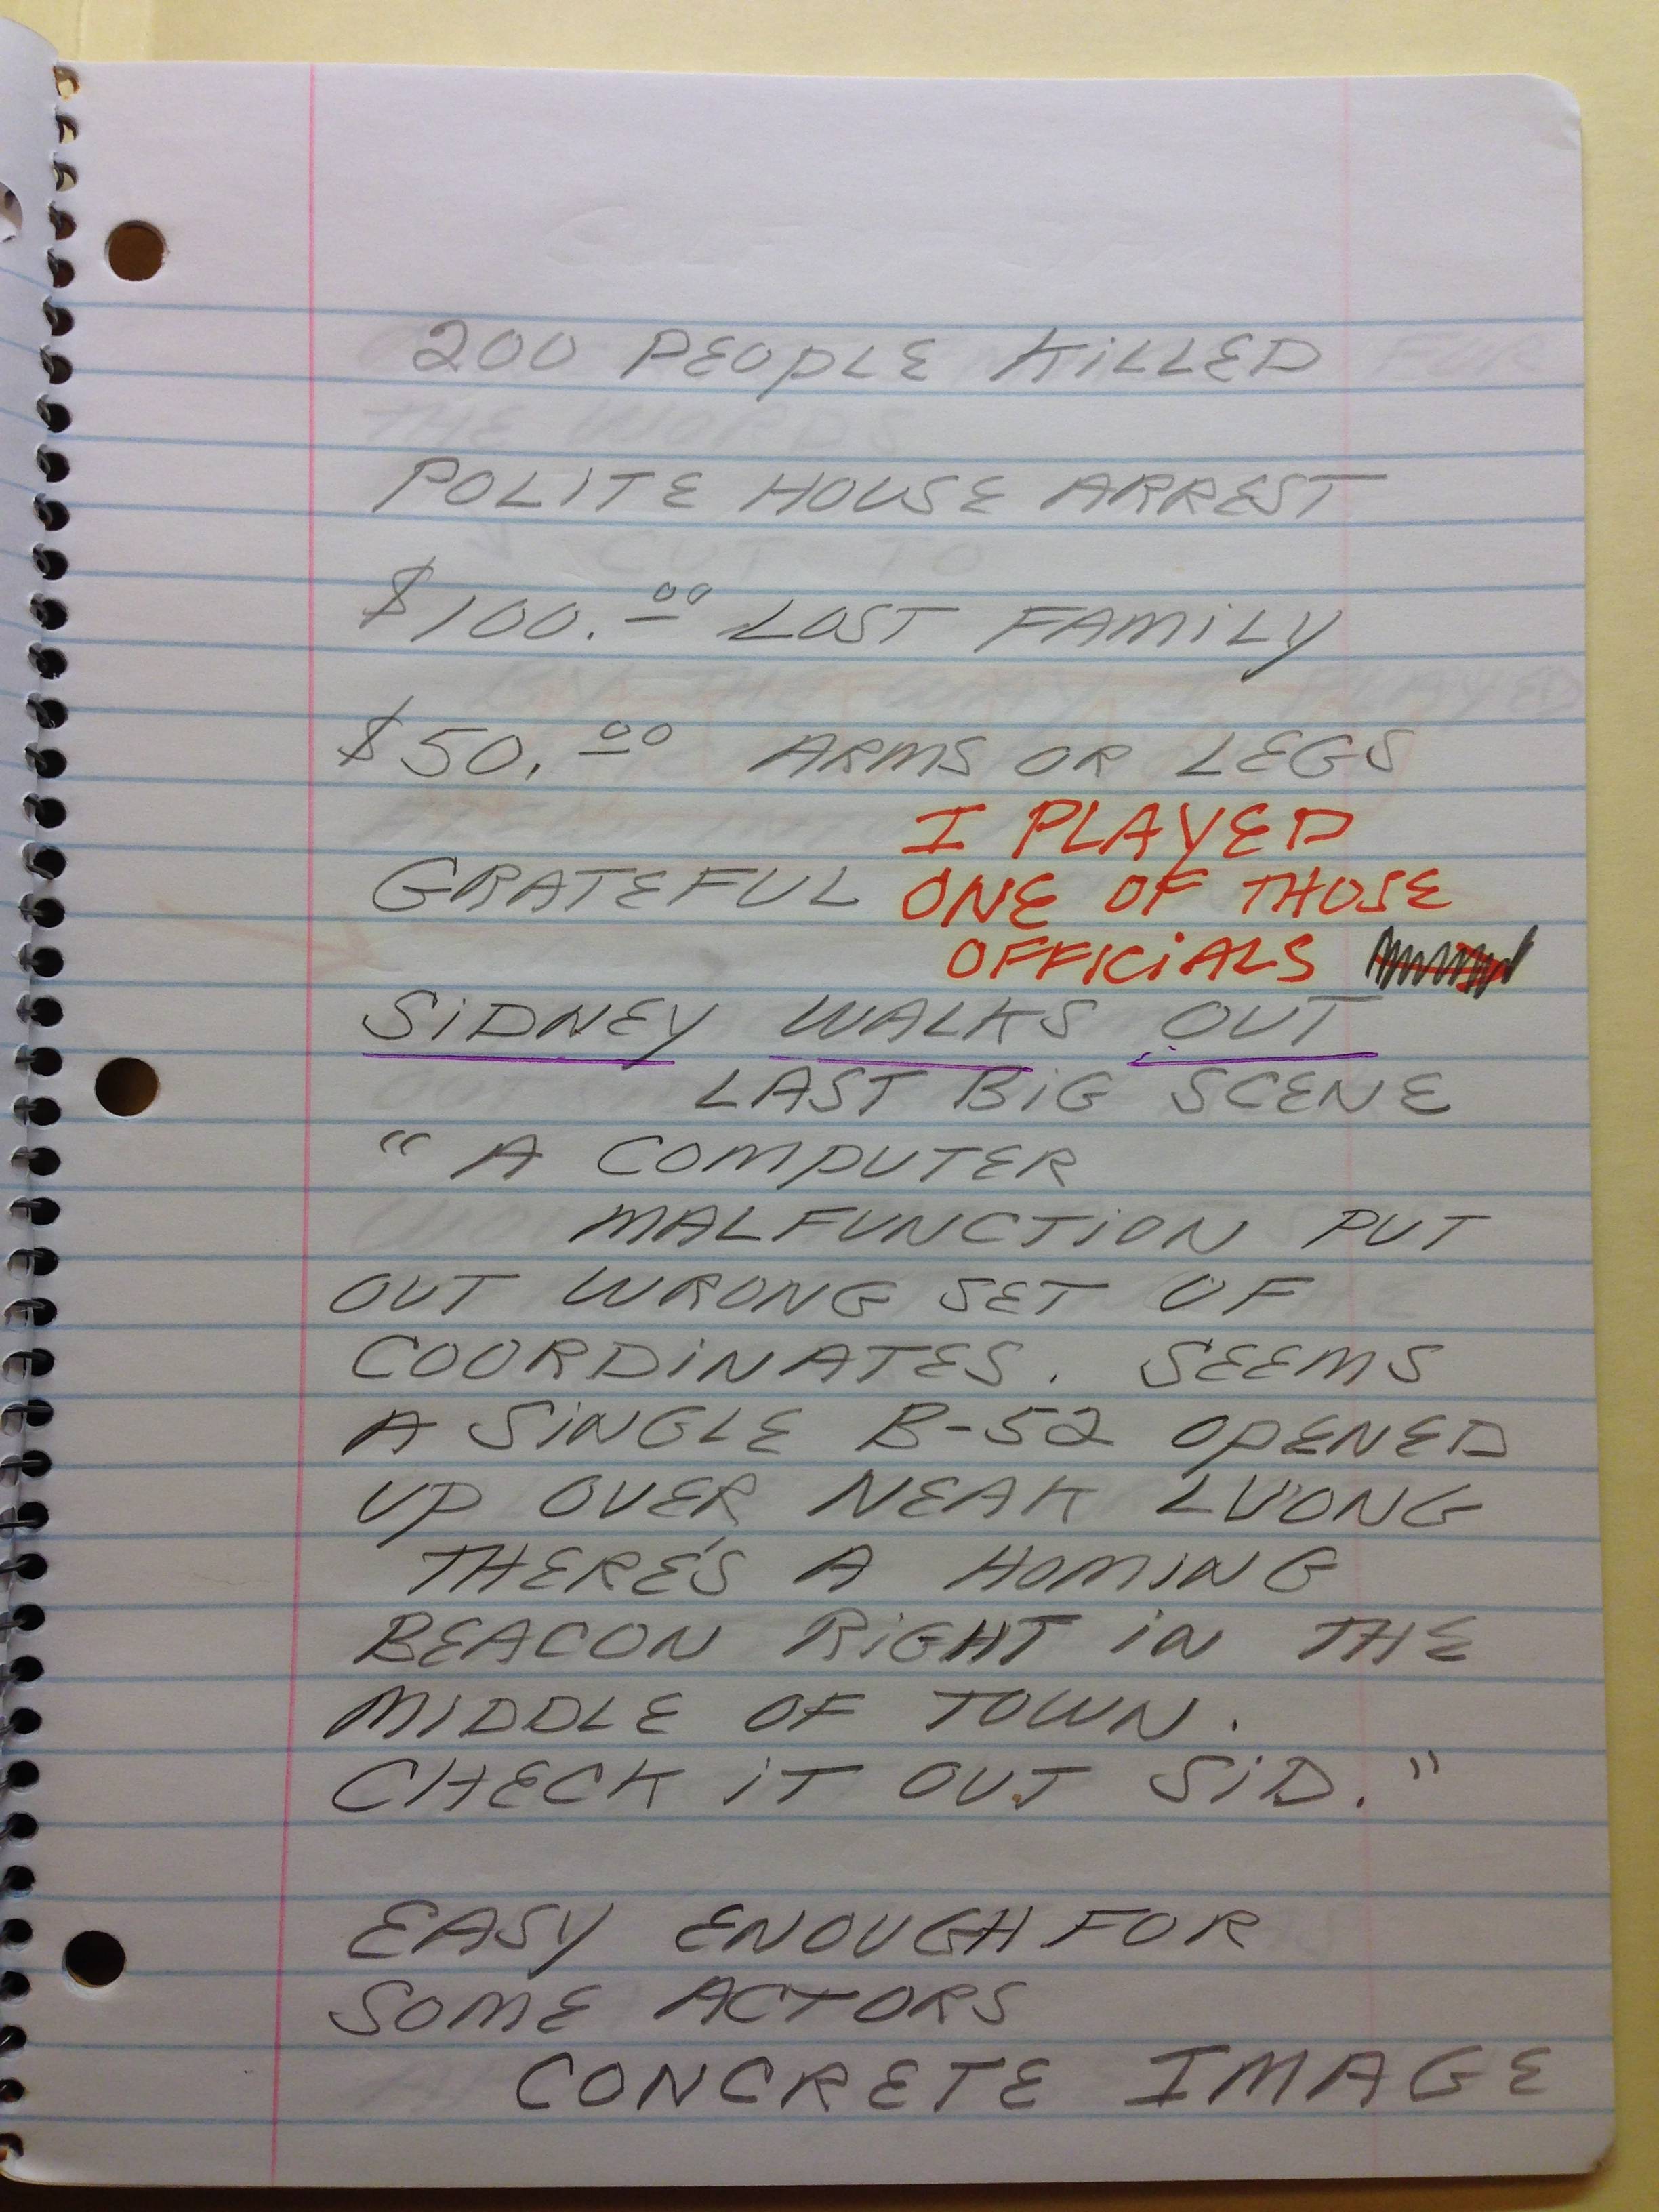 200 PEOPLE KILLED
POLITE HOUSE ARREST
$100.00 LOST FAMILY
$50.00 ARMS OR LEGS
I PLAYED
GRATEFUL ONE OF THOSE
OFFICIALS
SIDNEY WALKS OUT
LAST BIG SCENE
"A COMPUTER
MALFUNCTION PUT
OUT WRONG SET OF
COORDINATES. SEEMS
A SINGLE B-52 OPENED
UP OVER NEAK LUONG
THERE'S A HOMING
BEACON RIGHT IN THE
MIDDLE OF TOWN.
CHECK IT OUT SID."
EASY ENOUGH FOR
SOME ACTORS
CONCRETE IMAGE